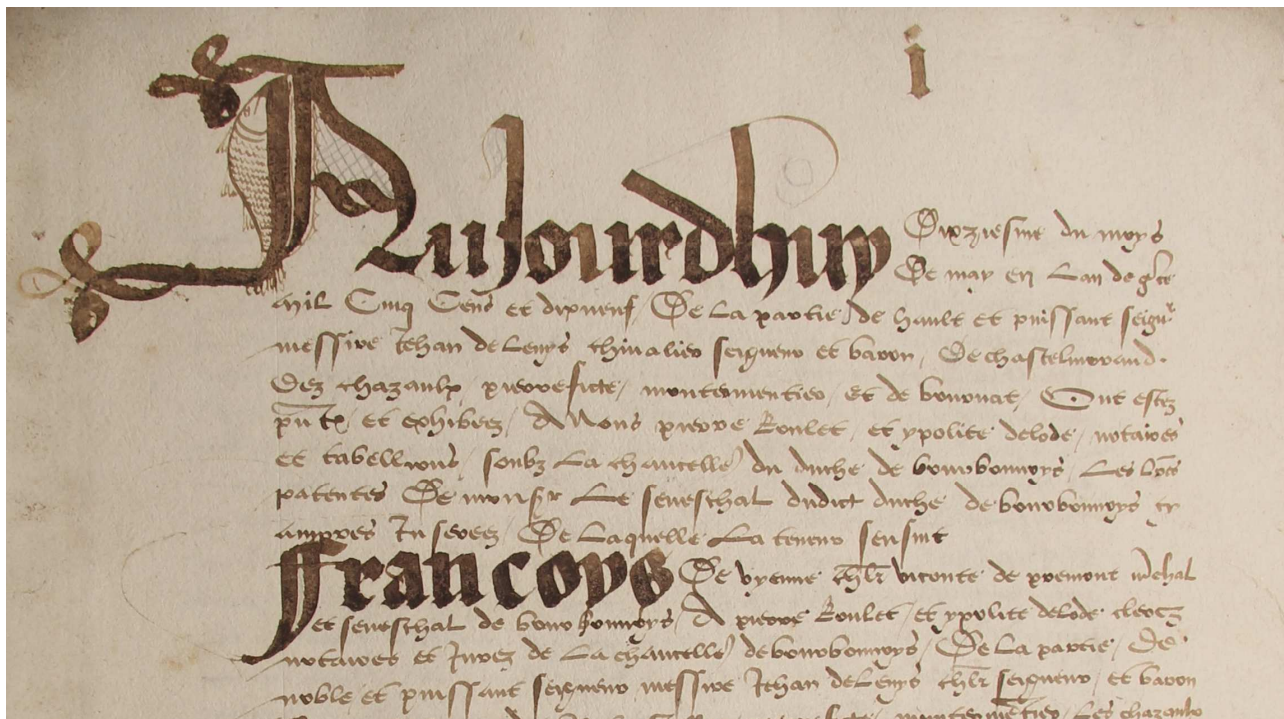 i
Aujourdhuy Dixziesme du moys
De may en Lan de gce
mil Cinq Cens et dixneuf De La partie de hault et puissant seigr
messire Jehan de Levys chivalier seigneur et baron De chastelmorand
Dez chazaulx pierreficte montarmentier et de bornat Ont estez
pntz et exhibeez A Nous pierre Roulet et ypolite delode notaires
et tabellions soubz La chancellerie du duche de bourbonnoys Les lres
patentes De monsr Le seneschal dudict duche de bourbonnoys cy
appres Inserees De Laquelle La teneur sensuit
Francoys De vyenne chlr viconte de mehal
et seneschal de bourbonnoys A pierre Roulet et ypolite delode clercz
notaires et Jurez de La chancellerie de bourbonnoys De La partie De
noble et puissant seigneur messire Jehan deLevys chlr seigneur et baron
Les chazaulx